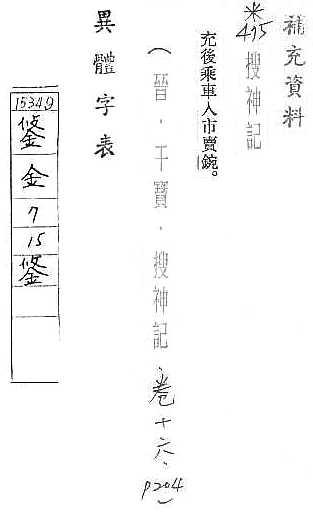 補充資料
※475 搜神記
充後乘車入市賣鋺。
(晉．干寶．搜神記、卷十六、P204)
異體字表
15349
鋚
金
7
15
鋚